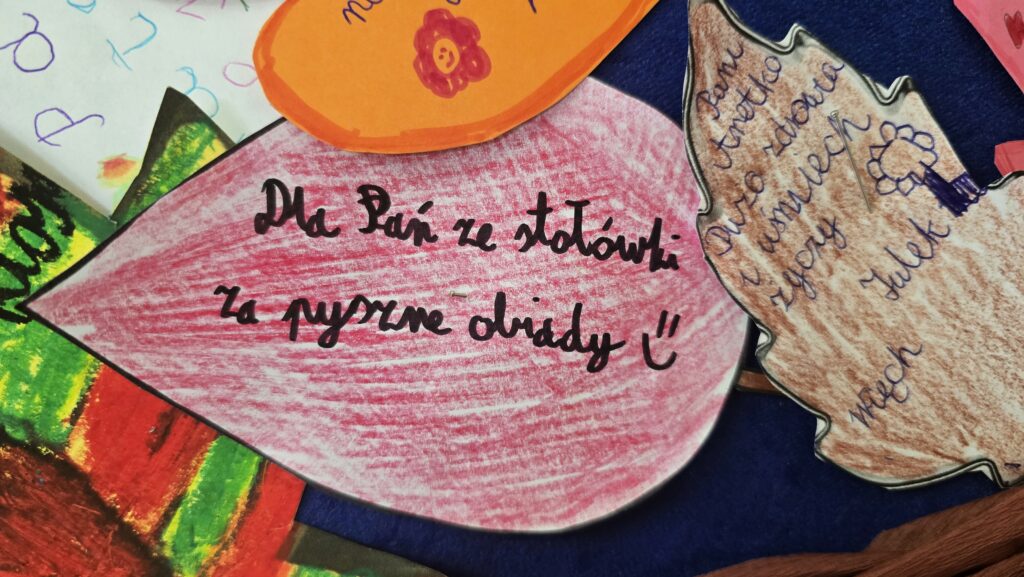 Dla Pań ze stołówki
za pyszne obiady
Pani
Anetko
Dużo zdrowia
i uśmiech
zgory
Julek
więch